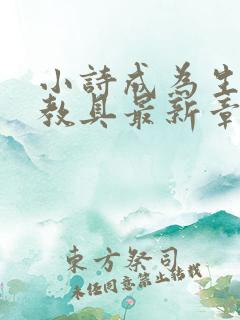 小詩成為生
教具最新章
東方祭司
未任同意禁止結載